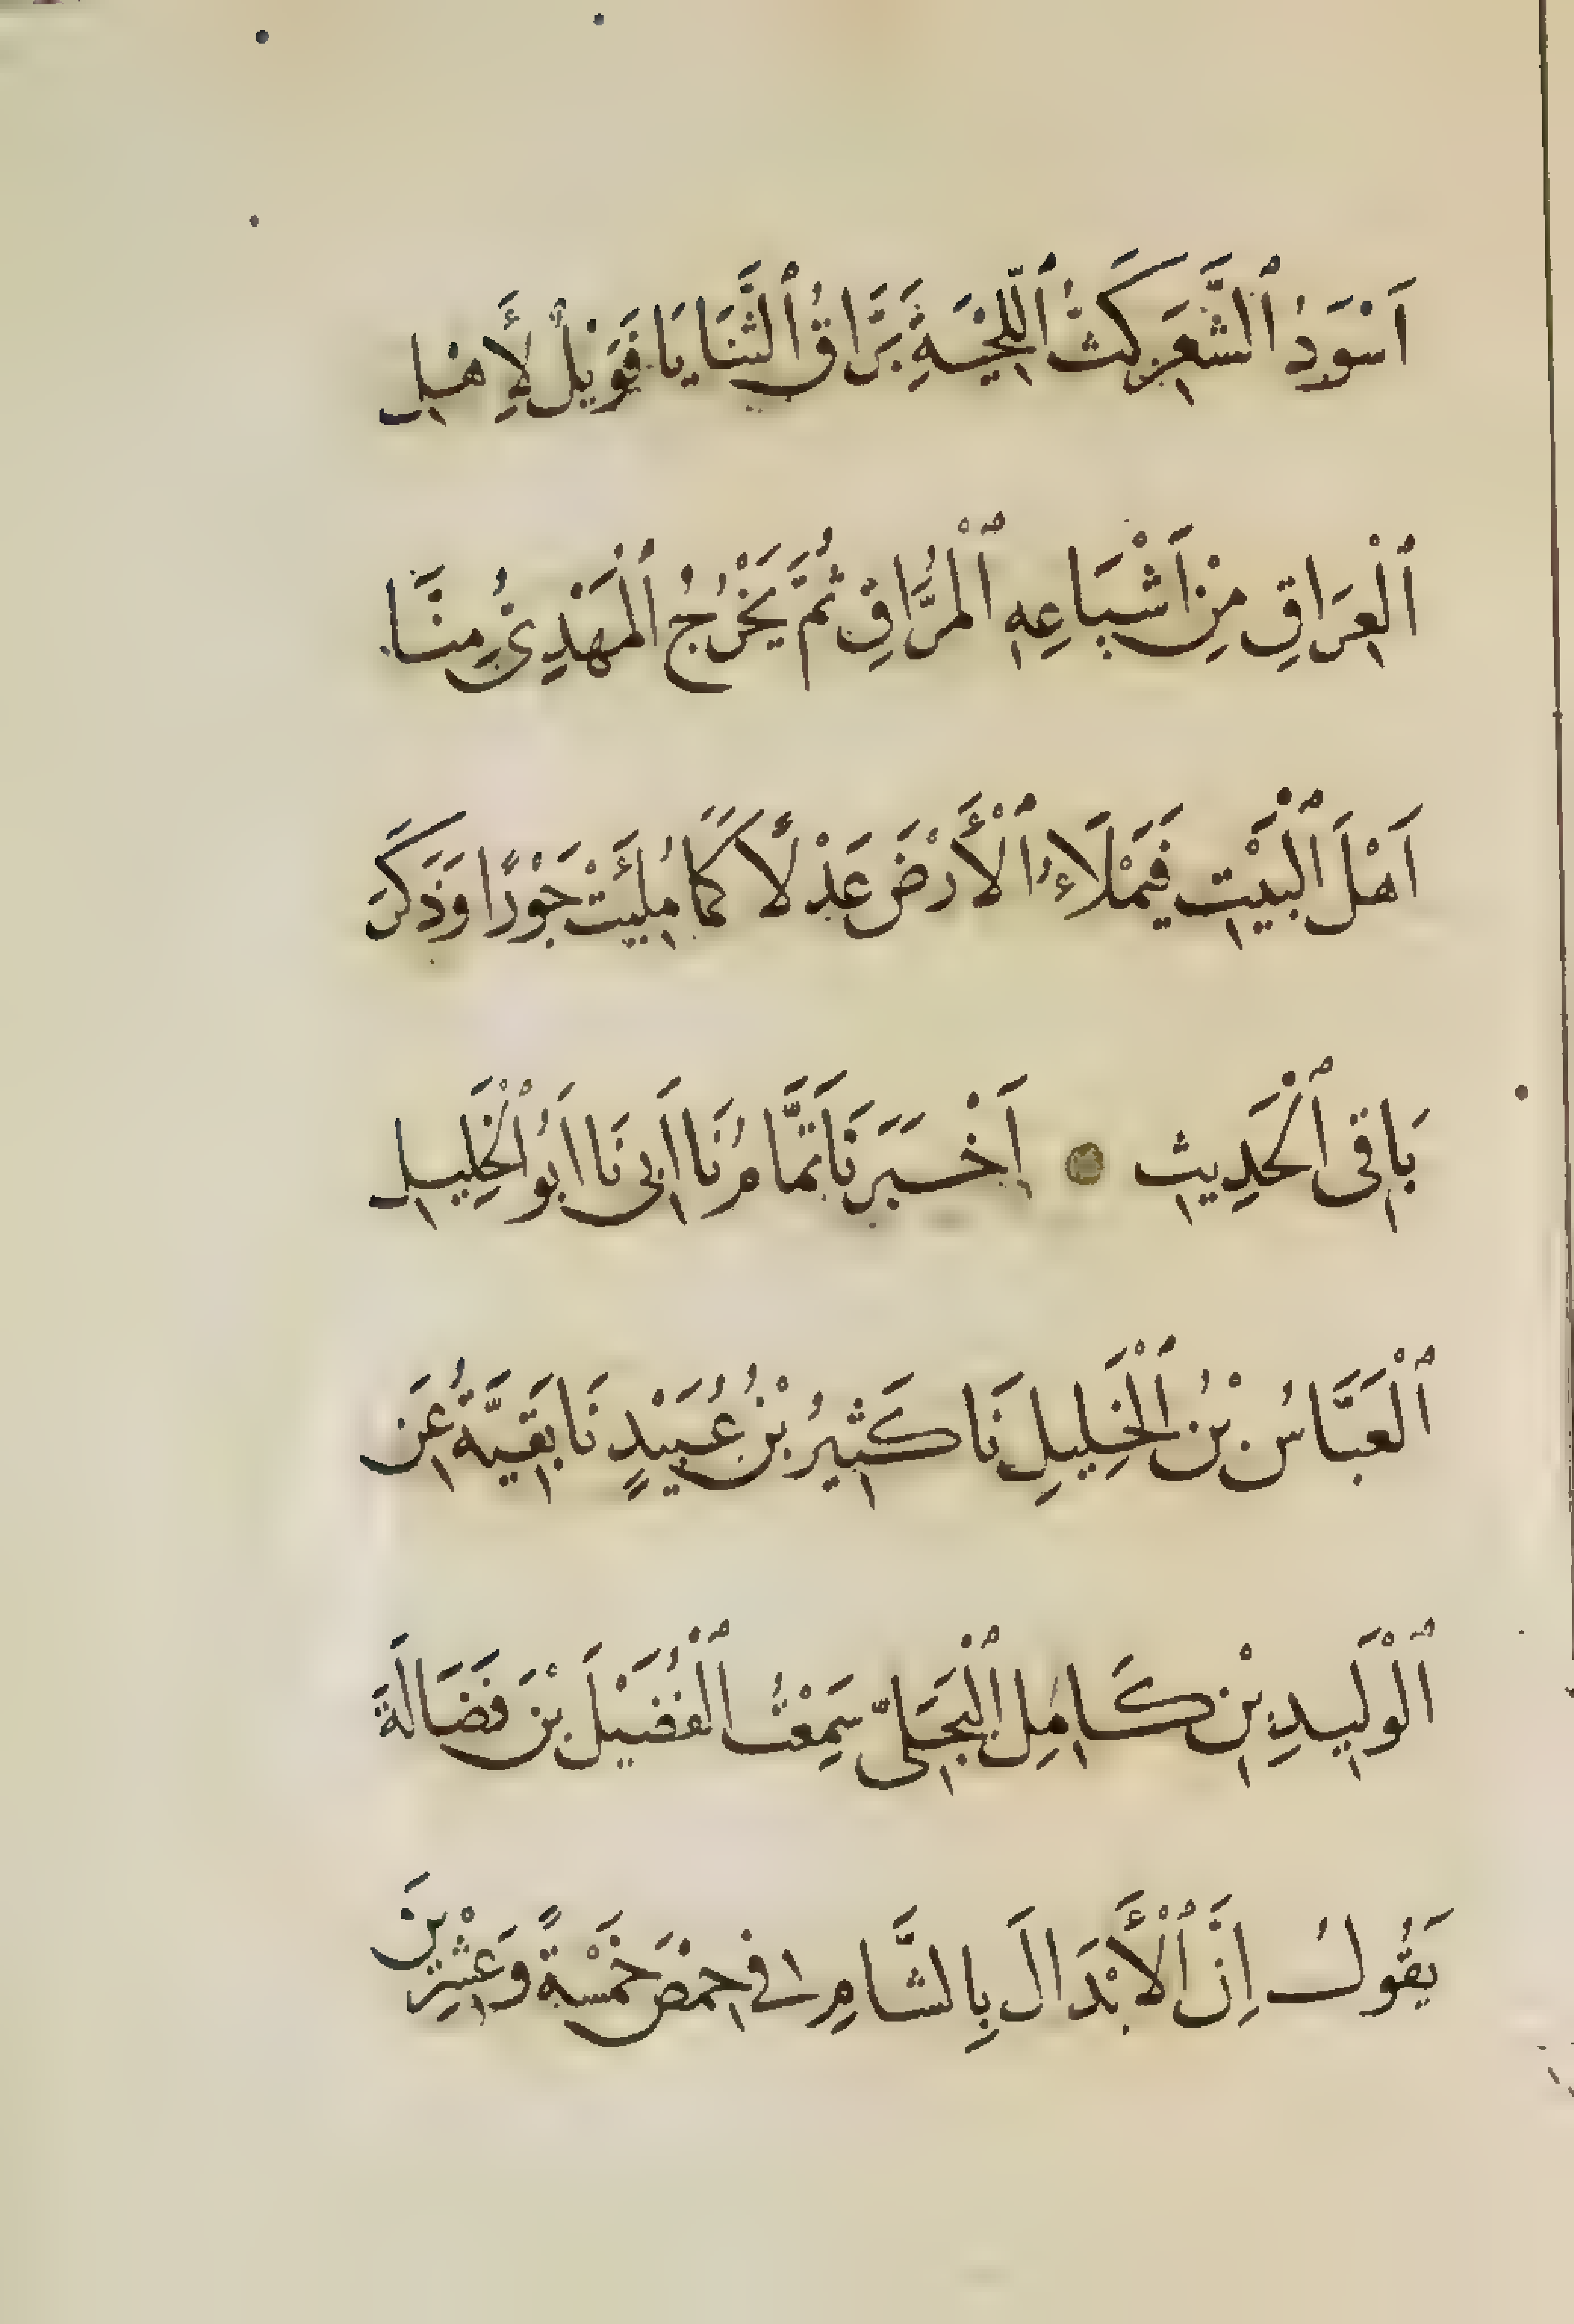 اَسْوَدُ ٱلشَّعَرِ كَثُّ ٱللِّحْيَةِ بَرَّاقُ ٱلثَّنَايَا فَوَيْلٌ لِأَهْلِ
ٱلْعِرَاقِ مِنْ اَشْيَاعِهِ ٱلْمُرَّاقِ ثُمَّ يَخْرُجُ ٱلْمَهْدِىُّ مِنَّا
اَهْلَ ٱلْبَيْتِ فَيَمْلَاءُ ٱلْأَرْضَ عَدْلًا كَمَا مُلِئَتْ جَوْرًا وَذَكَرَ
بَاقِى ٱلْحَدِيثِ ● اَخْبَرَنَا تَمَّامُ نَا اَبِى نَا اَبُو ٱلْخَلِيلِ
ٱلْعَبَّاسُ بْنُ ٱلْخَلِيلِ نَا كَثِيرُ بْنُ عُبَيْدٍ نَا بَقِيَّةُ عَنِ
ٱلْوَلِيدِ بْنِ كَامِلِ ٱلْبَجَلِىّ سَمِعْتُ ٱلْفُضَيْلَ بْنَ فَضَالَةَ
يَقُولُ اِنَّ ٱلْأَبْدَالَ بِالشَّامِ فِى حِمْصَ خَمْسَةً وَعِشْرِينَ